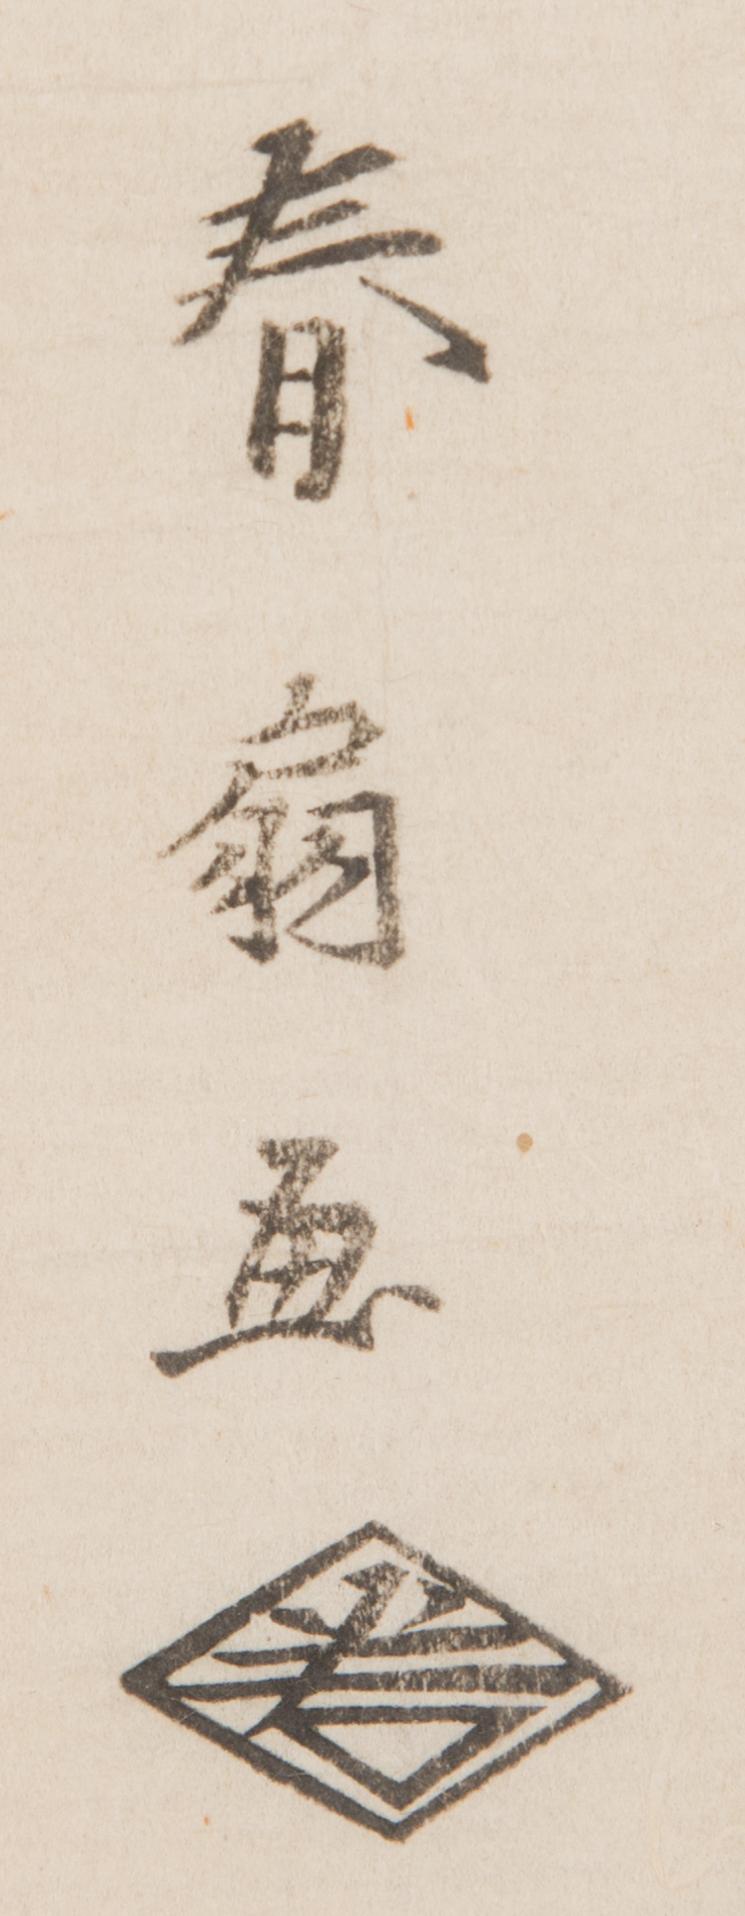 春扇画